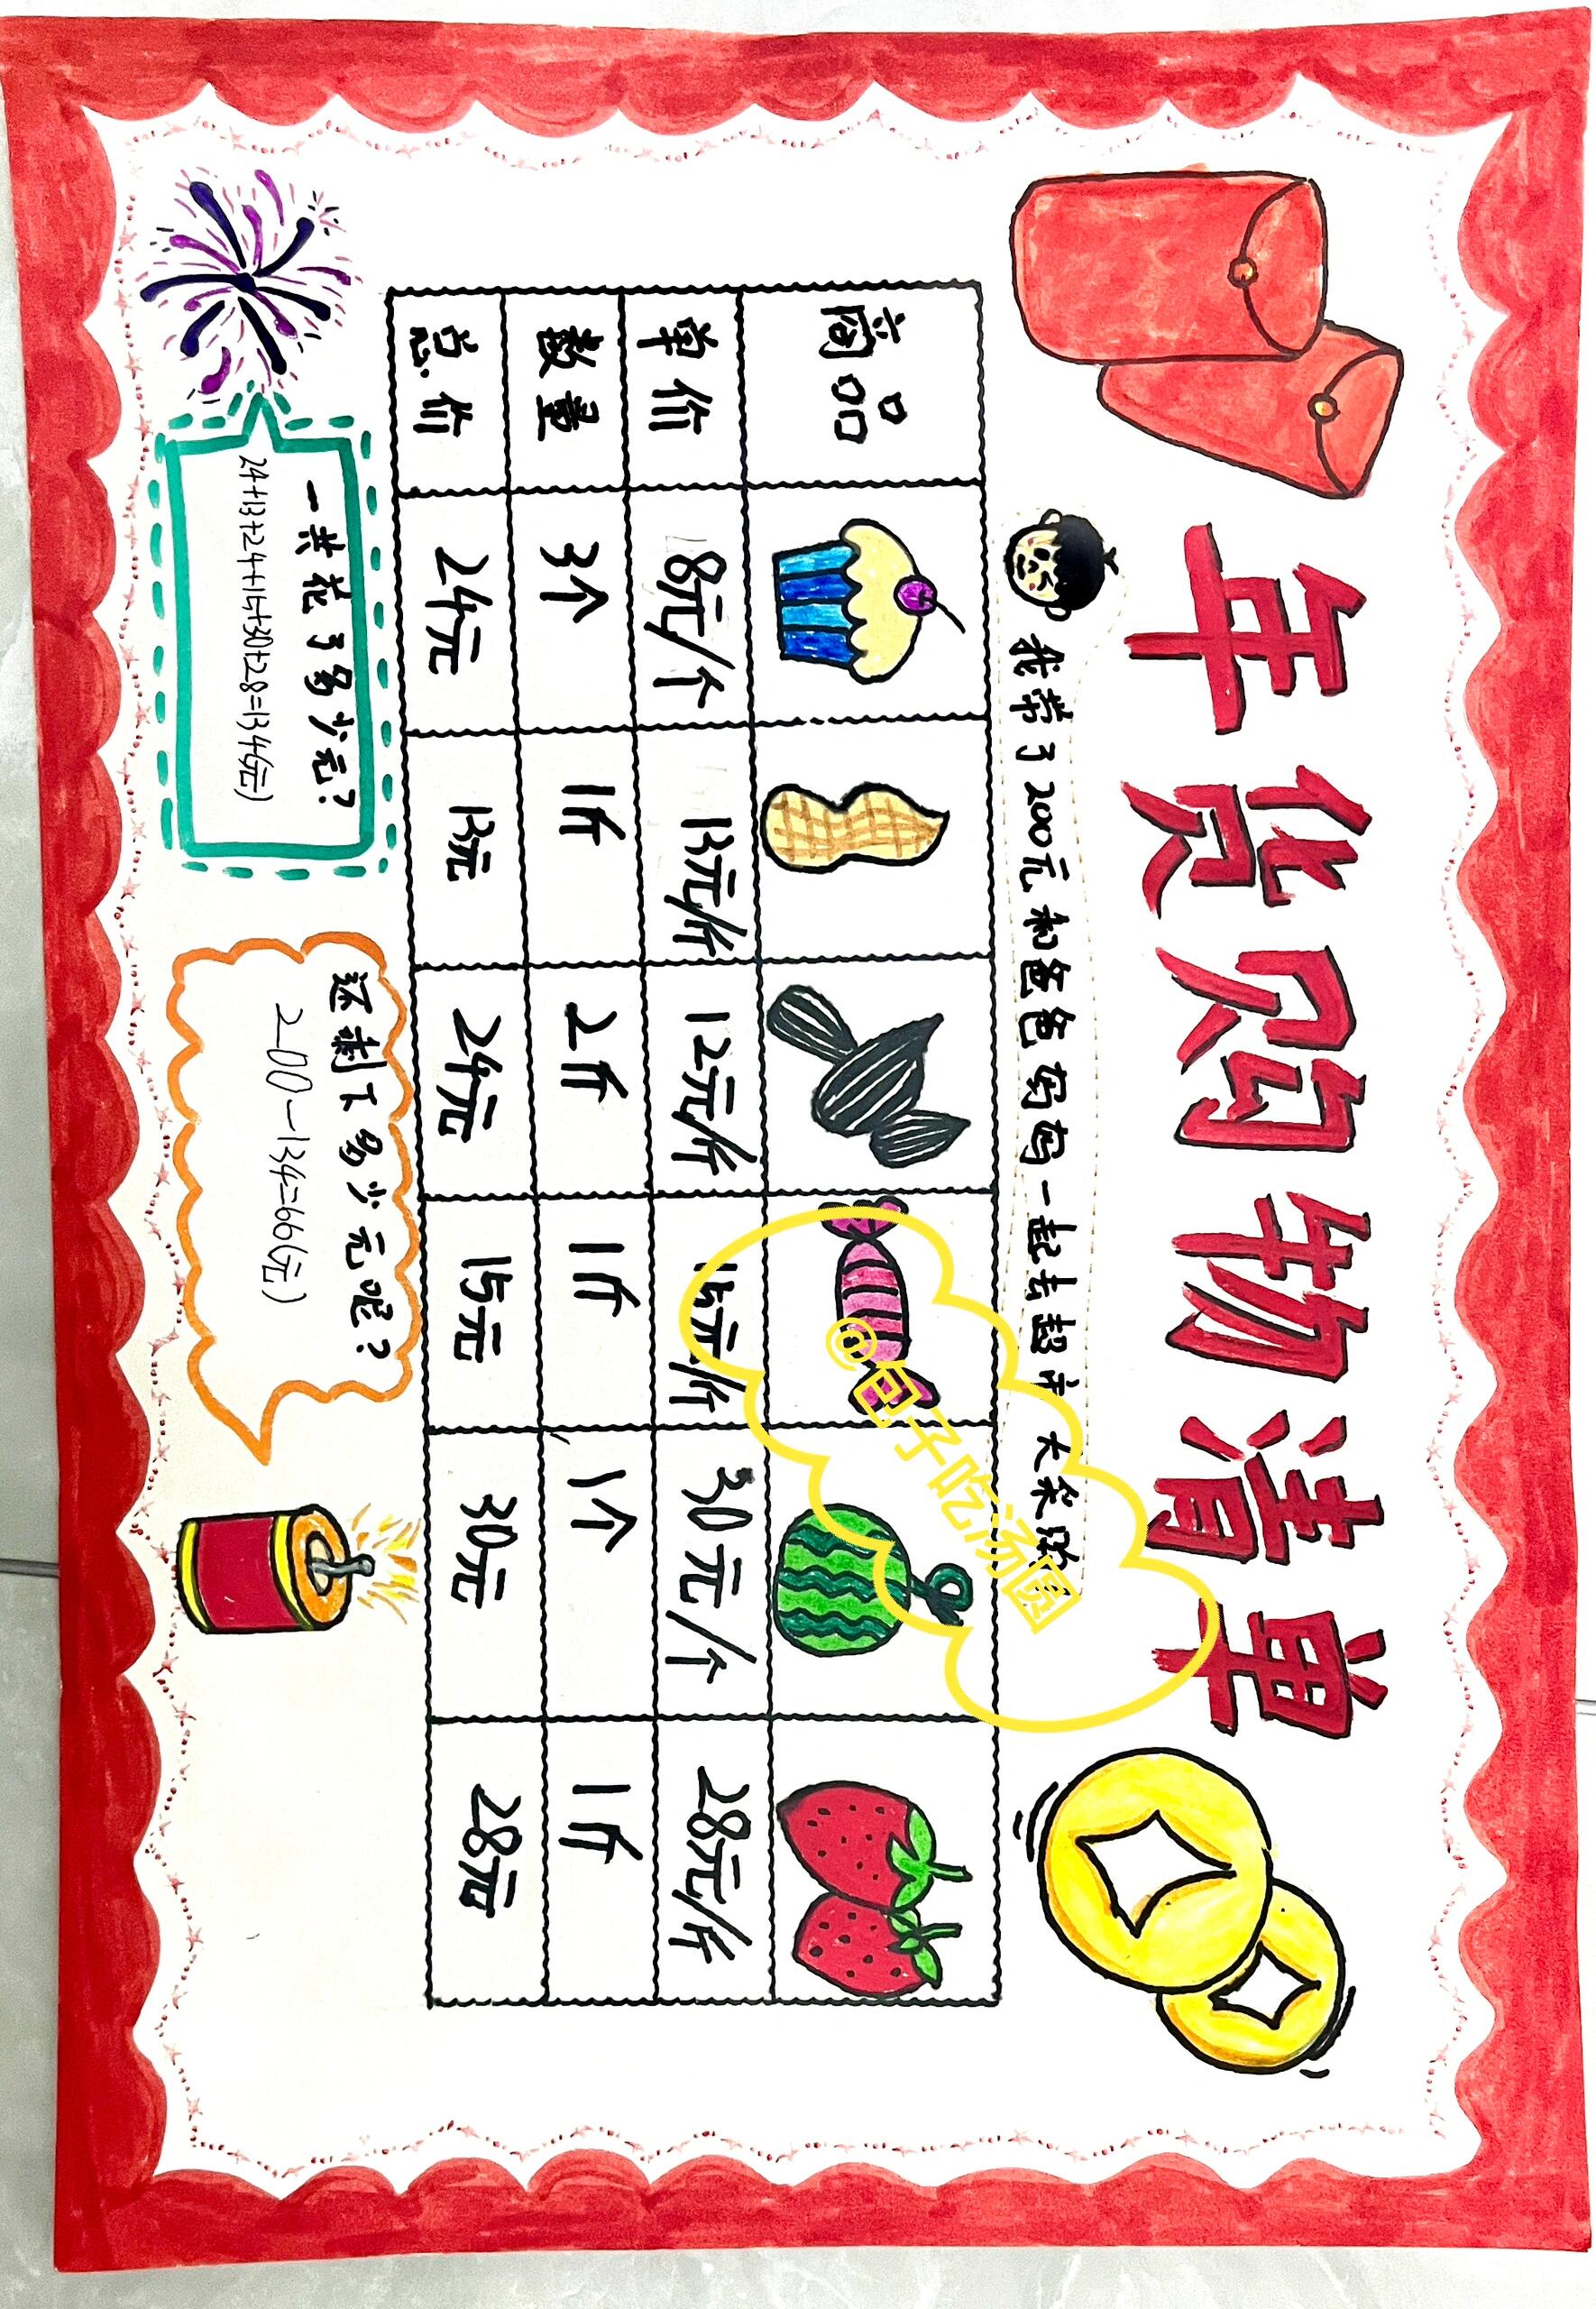 年货购物清单
我带了200元和爸爸妈妈一起去超市大采购
商品
单价 8元/个 13元/斤 12元/斤 15元/斤 30元/个 28元/斤
数量 3个 1斤 2斤 1斤 1个 1斤
总价 24元 13元 24元 15元 30元 28元
一共花了多少元?
24+13+24+15+30+28=134(元)
还剩下多少元呢?
200-134=66(元)
@包子吃汤圆